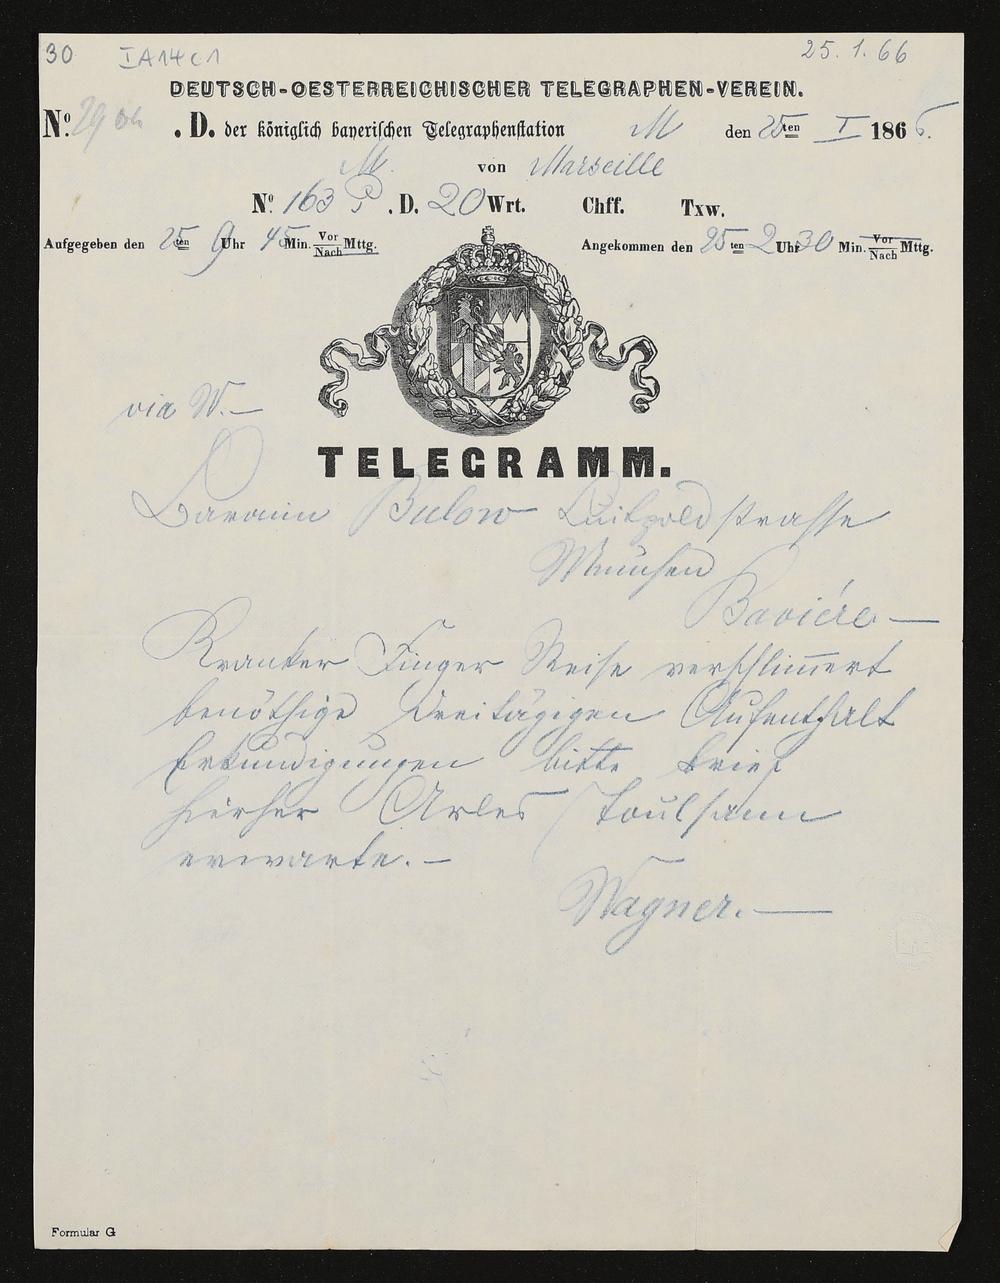 30 IA14c1 25.1.66
DEUTSCH-OESTERREICHISCHER TELEGRAPHEN-VEREIN.
No. . D. der königlich bayerischen Telegraphenstation M den 25ten I 1866.
M. von Marseille
No. 163 P. D. 20 Wrt. Chff. Txw.
Aufgegeben den 25ten 9 Uhr 45 Min. Vor Nach Mttg. Angekommen den 25ten 2 Uhr 30 Min. Vor Nach Mttg.
via W. —
TELEGRAMM.
Baronin Bulow Luitpoldstrasse
München
Baviére —
Kranker Finger Reise verschlimmert
benöthige dreitägigen Aufenthalt
Erkundigungen bitte brief
hierher Arles
erwarte. —
Wagner. —
Formular G